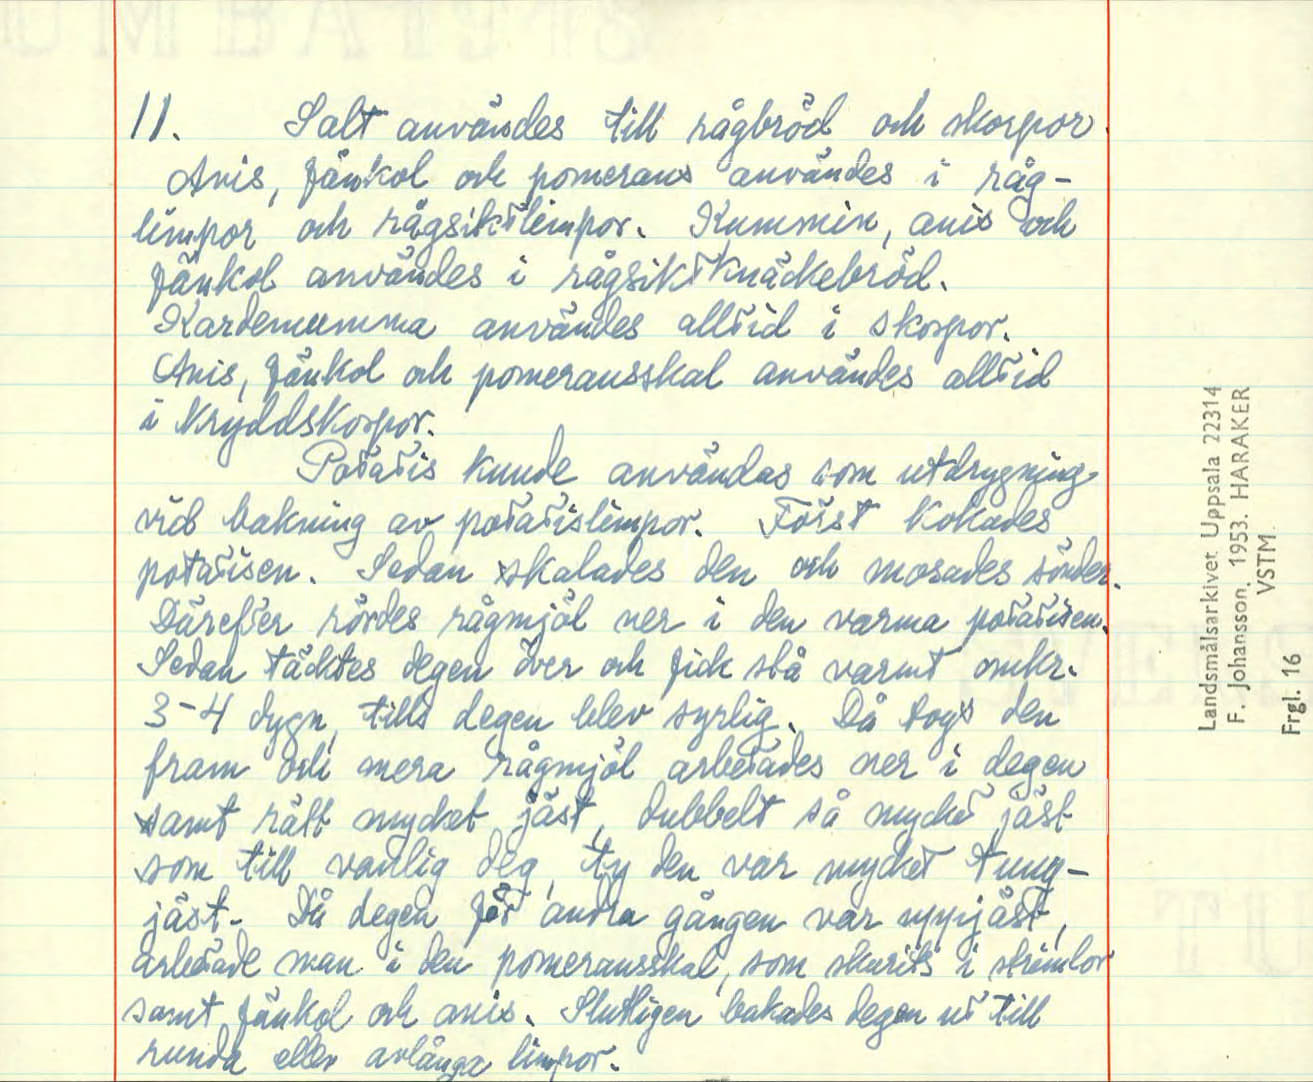 11. Salt användes till rågbröd och skorpor.
Anis, fänkol och pomerans användes i råg-
limpor och rågsiktlimpor. Kummin, anis och
fänkol användes i rågsiktknäckebröd.
Kardemumma användes alltid i skorpor.
Anis, fänkol och pomeransskal användes alltid
i kryddskorpor.
Potatis kunde användas som utdrygning
vid bakning av potatislimpor. Först kokades
potatisen. Sedan skalades den och mosades sönder.
Därefter rördes rågmjöl ner i den varma potatisen.
Sedan täcktes degen över och fick stå varmt omkr.
3-4 dygn, tills degen blev syrlig. Då togs den
fram och mera rågmjöl arbetades ner i degen
samt rätt mycket jäst, dubbelt så mycket jäst
som till vanlig deg, ty den var mycket tung-
jäst. Då degen för andra gången var uppjäst,
arbetade man i den pomeransskal, som skurits i strimlor
samt fänkol och anis. Slutligen bakades degen ut till
runda eller avlånga limpor.
Landsmålsarkivet Uppsala 22314
F. Johansson. 1953. HARAKER
VSTM
Frgl. 16